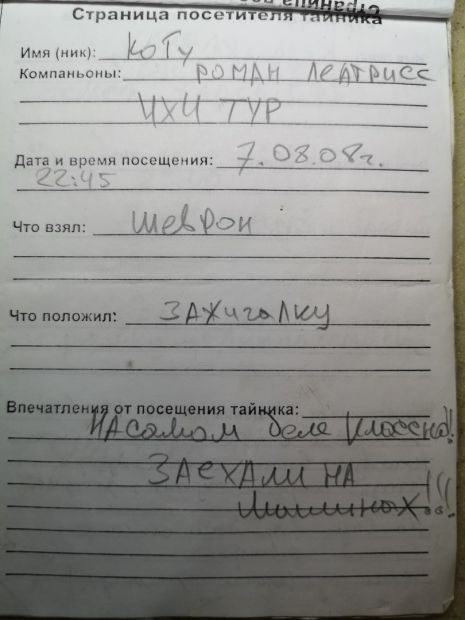 Страница посетителя тайника
Имя (ник): Коту
Компаньоны: РОМАН ЛЕАТРИСС
ИХИ ТУР
Дата и время посещения: 7.08.08г.
22:45
Что взял: шеврон
Что положил: ЗАЖигАЛКу
Впечатления от посещения тайника:
НА самом деле Классно!
ЗАЕХАЛИ НА
Машинах!!!